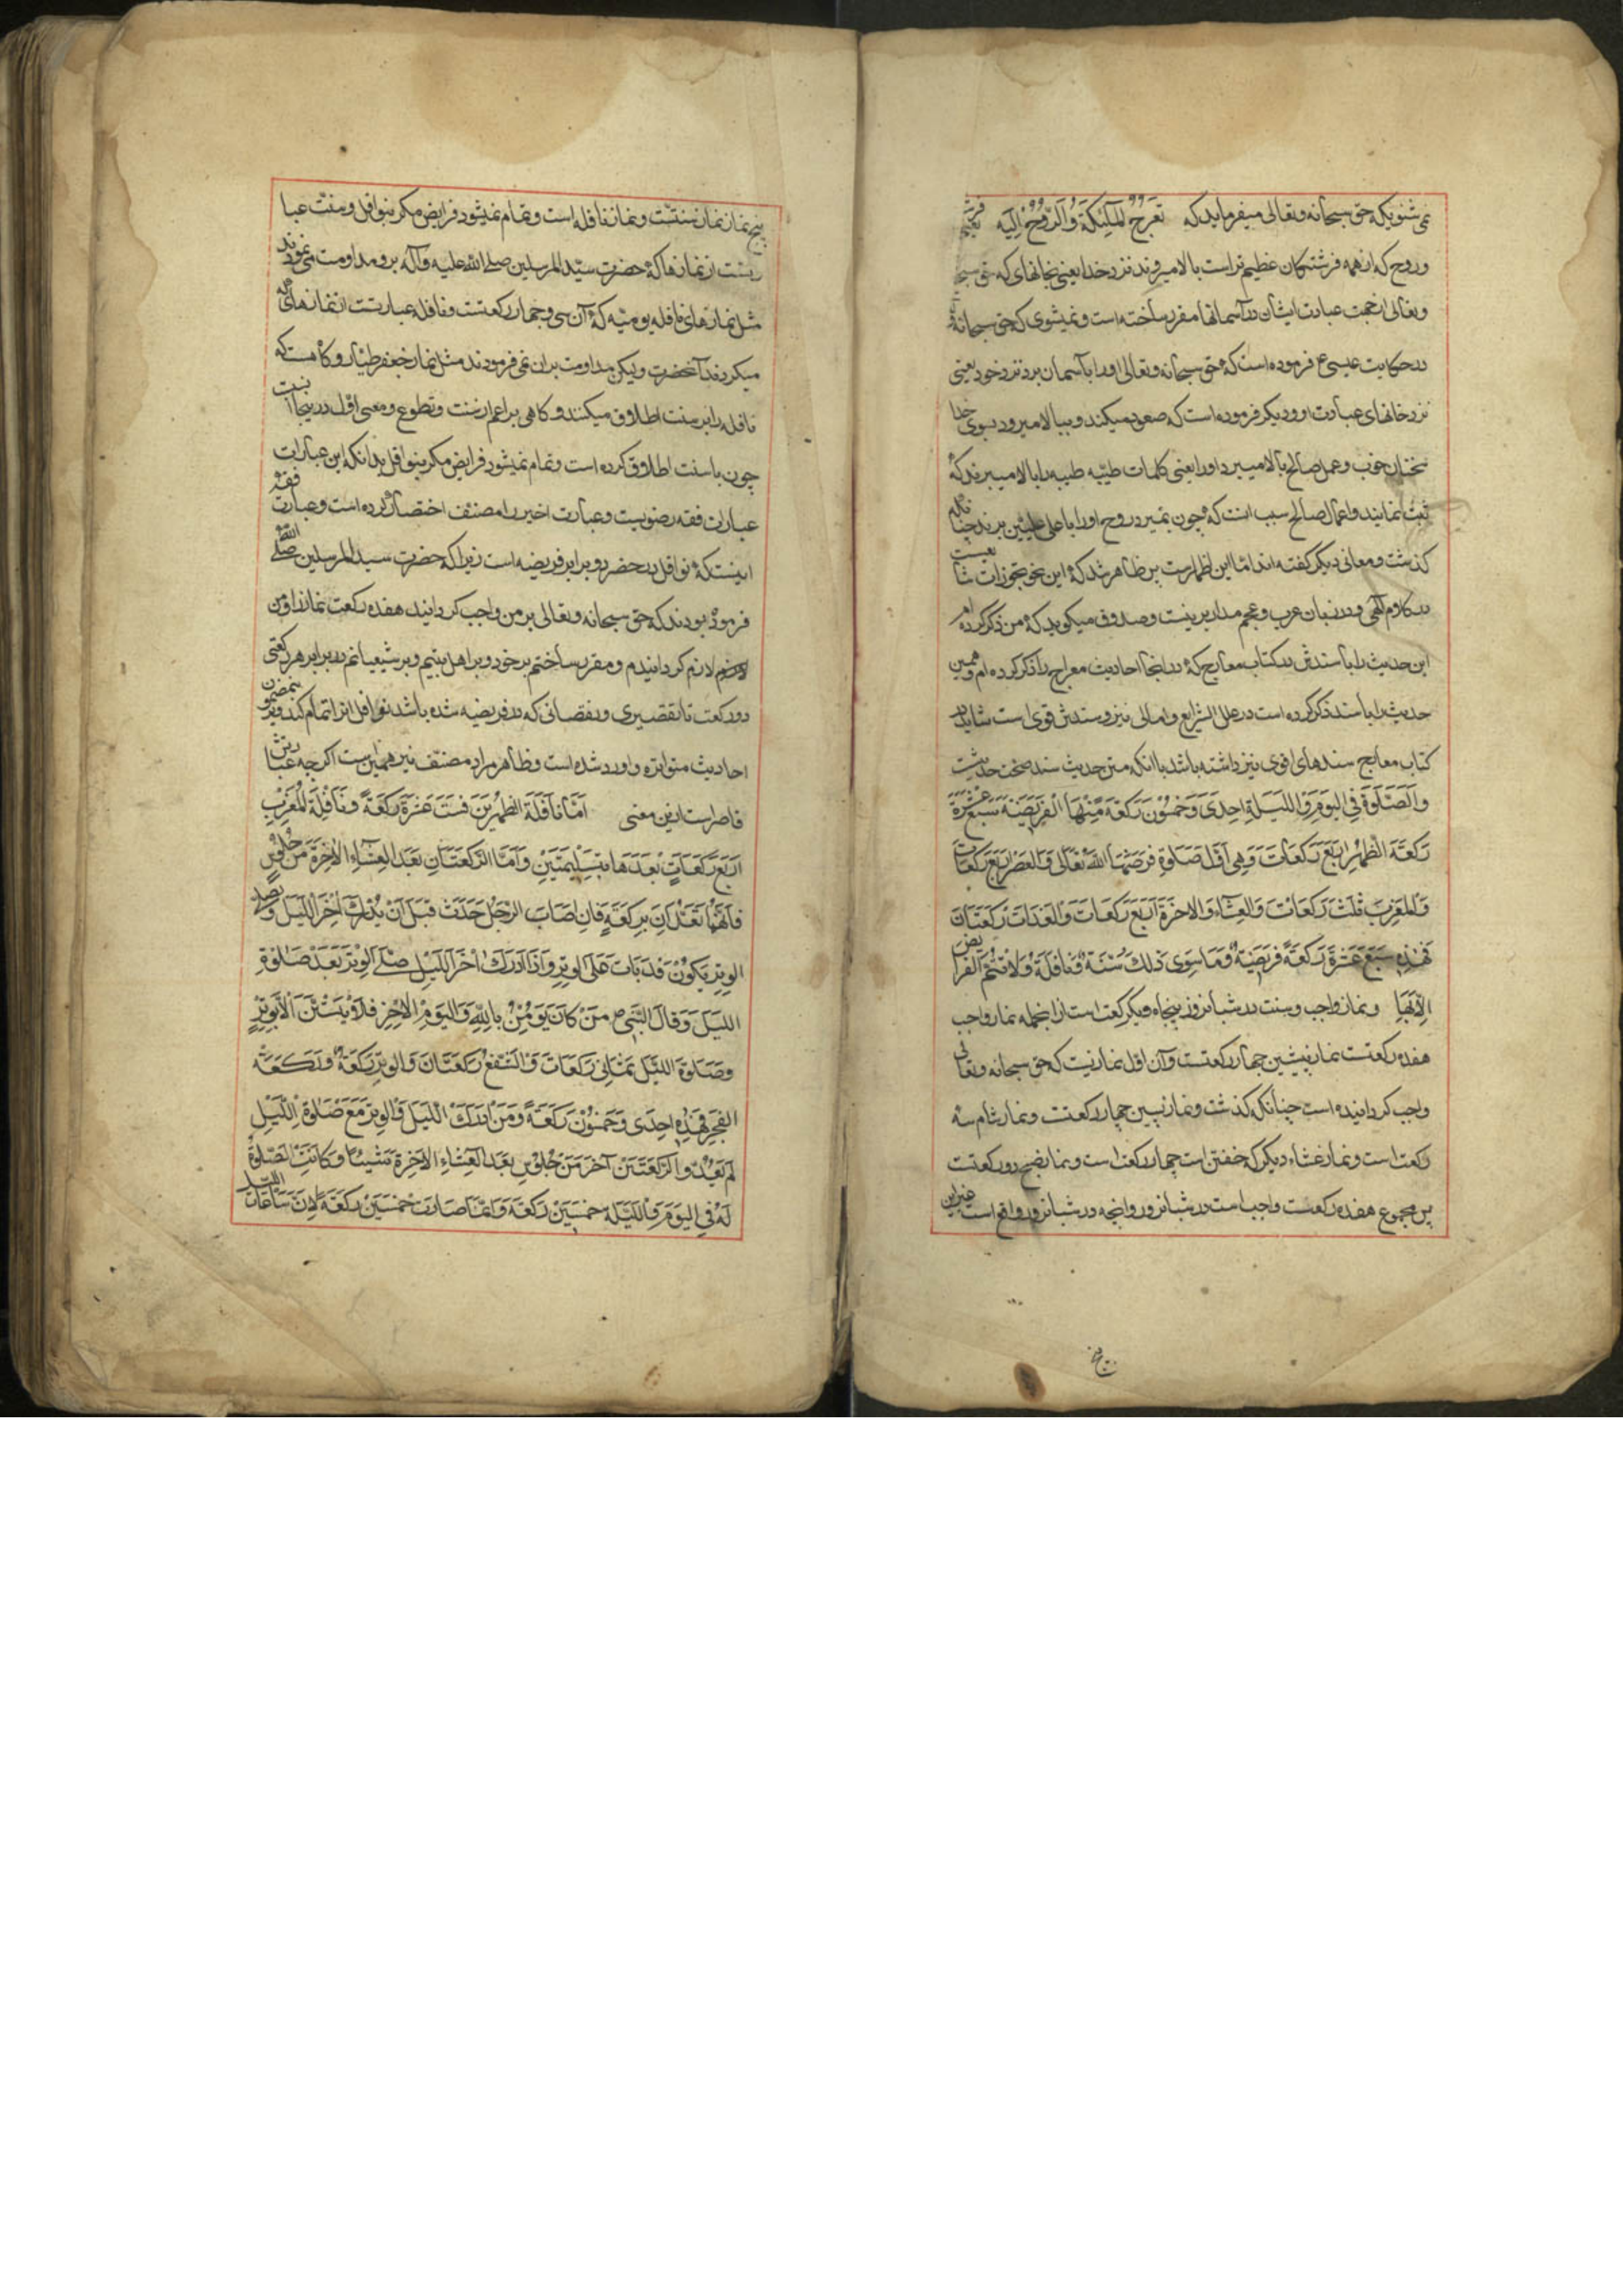 نمی شنوی که حق سبحانه وتعالی میفرماید که تَعرُجُ المَلٰئِکَةُ وَالرُّوحُ اِلَیهِ یعنی
و روح که از همه فرشتگان عظیم تر است بالا میروند نزد خدا یعنی بجائهای که حق سبحا
وتعالی از جهت عبادت ایشان در آسمانها مقرر ساخته است و نمیشنوی که حق سبحانه و
در حکایت عیسی ع فرموده است که حق سبحانه وتعالی اورا بآسمان برد نزد خود یعنی
نزد خانهای عبادت او و دیگر فرموده است که صعود میکند و ببالا میرود بسوی خدا
سخنان خوب و عمل صالح بالا میبرد اورا یعنی کلمات طیبه طیبه را بالا میبرند که
ثبت نمایند و اعمال صالح سبب انست که چون بمیرد روح اورا باعلی علیین برند چنانکه
کذشت ومعانی دیکر کفته اند امّا این اظهرست پس ظاهر شد که این نحو تجوزات شایعست
در کلام آلهی و در زبان عرب و عجم مدار برینست وصدوق میکوید که من ذکر کرده ام
این حدیث را با سندش در کتاب معارج که در انجا احادیث معراج را ذکر کرده ام و همین
حدیث را با سند ذکر کرده است در علل الشرایع و امالی نیز و سندش قوی است شاید در
کتاب معارج سندهای اقوی نیز داشته باشد با انکه متن حدیث سند صحت حدیثست
وَالصَّلٰوةُ فِی الیَومِ وَاللَّیلَةِ اِحدَی وَخَمسُونَ رَکعَةً مِنهَا الفَرِیضَةُ سَبعَ عَشرَةَ
رَکعَةً الظُّهرُ اَربَعُ رَکَعاتٍ وَهِیَ اَوَّلُ صَلٰوةٍ فَرَضَهَا اللهُ تَعَالٰی وَالعَصرُ اَربَعُ رَکعَاتٍ
وَالمَغرِبُ ثَلٰثُ رَکَعَاتٍ وَالعِشَاءُ الاخِرَةُ اَربَعُ رَکَعَاتٍ وَالغَدَاتُ رَکعَتَانِ
فَهٰذِهِ سَبعَ عَشرَةَ رَکعَةً فَرِیضَةٌ وَمَا سِوَی ذٰلِکَ سُنَّةٌ وَنَافِلَةٌ وَلَا تَتِمُّ الفَرَایِضُ
اِلَّا بِهَا ونماز واجب و سنت در شبانروز پنجاه ویک رکعت است از انجمله نماز واجب
هفده رکعتست نماز پیشین چهار رکعتست و آن اول نمازیست که حق سبحانه وتعالی
واجب کردانیده است چنانکه کذشت و نماز پسین چهار رکعتست و نماز شام سه
رکعت است و نماز عشاء دیکر که خفتن است چهار رکعت است و نماز صبح دو رکعتست
پس مجموع هفده رکعتست واجب است در شبانروز و انچه در شبانروز واقع است غیر این
پنج نماز نماز سنتست و نماز نافله است و تمام نمیشود فرایض مکر بنوافل و سنت عبا
ریست از نمازها که حضرت سیّد المرسلین صلی الله علیه وآله برو مداومت می نمودند
مثل نمازهای نافله یومیّه که آن سی و چهار رکعتست و نافله عبارتست از نمازهای که
میکردند آنحضرت ولیکن مداومت بران نمی فرمودند مثل نماز جعفر طیّار و کاه هست که
نافله را بر سنت اطلاق میکنند و کاهی بر اعم از سنت و تطوع و معنی اوّل در ینجا انسبت
چون با سنت اطلاق کرده است و تمام نمیشود فرایض مکر بنوافل بدانکه این عبارات
عبارات فقه رضویست و عبارت اخیر را مصنف اختصار کرده است و عبارت فقه
اینستکه نوافل در حضر دو برابر فریضه است زیرا که حضرت سید المرسلین صلی الله
فرموده بودند که حق سبحانه وتعالی بر من واجب کردانید هفده رکعت نماز را و من
لازم کردانیدم و مقرر ساختم بر خود و بر اهل بیتم و بر شیعیانم در برابر هر رکعتی
دو رکعت تا تقصیری و نقصانی که در فریضه شده باشد نوافل انرا تمام کند و برین مضمون
احادیث متواتره وارد شده است و ظاهر مراد مصنّف نیز همین است اکرچه عبارتش
قاصر است ازین معنی اَمَّا نَافِلَةُ الظُّهرَینِ فَسِتَّ عَشرَةَ رَکعَةً وَنَافِلَةُ المَغرِبِ
اَربَعُ رَکَعَاتٍ بَعدَهَا بِتَسلِیمَتَینِ وَاَمَّا الرَّکعَتَانِ بَعدَ العِشَاءِ الاخِرَةِ مِن جُلُوسٍ
فَاِنَّهُمَا تُعَدَّانِ بِرَکعَةٍ فَاِن اَصَابَ الرَّجُلَ حَدَثٌ قَبلَ اَن یُدرِکَ آخِرَ اللَّیلِ وَیُصَلِّی
الوِترَ یَکُونُ قَد بَاتَ عَلَی الوِترِ وَاِذَا اَدرَکَ آخِرَ اللَّیلِ صَلَّی الوِترَ بَعدَ صَلٰوةِ
اللَّیلِ وَقَالَ النَّبِیُّ ص مَن کَانَ یُومِنُ بِاللّٰهِ وَالیَومِ الاخِرِ فَلَا یَبِیتَنَّ اِلَّا بِوِترٍ
وَصَلٰوةُ اللَّیلِ ثَمَانِی رَکَعَاتٍ وَالشَّفعُ رَکعَتَانِ وَالوِترُ رَکعَةٌ وَرَکعَتَا
الفَجرِ فَهٰذِهِ اِحدَی وَخَمسُونَ رَکعَةً وَمَن اَدرَکَ اللَّیلَ وَالوِترَ مَعَ صَلٰوةِ اللَّیلِ
لَم یَعُدَّ الرَّکعَتَینِ آخِرَ مِن جُلُوسٍ بَعدَ العِشَاءِ الاخِرَةِ شَیئًا وَکَانَتِ الصَّلٰوةُ
لَهُ فِی الیَومِ وَاللَّیلَةِ خَمسِینَ رَکعَةً وَاِنَّمَا صَارَت خَمسِینَ رَکعَةً لِاَنَّ سَاعَاتِ اللَّیلِ